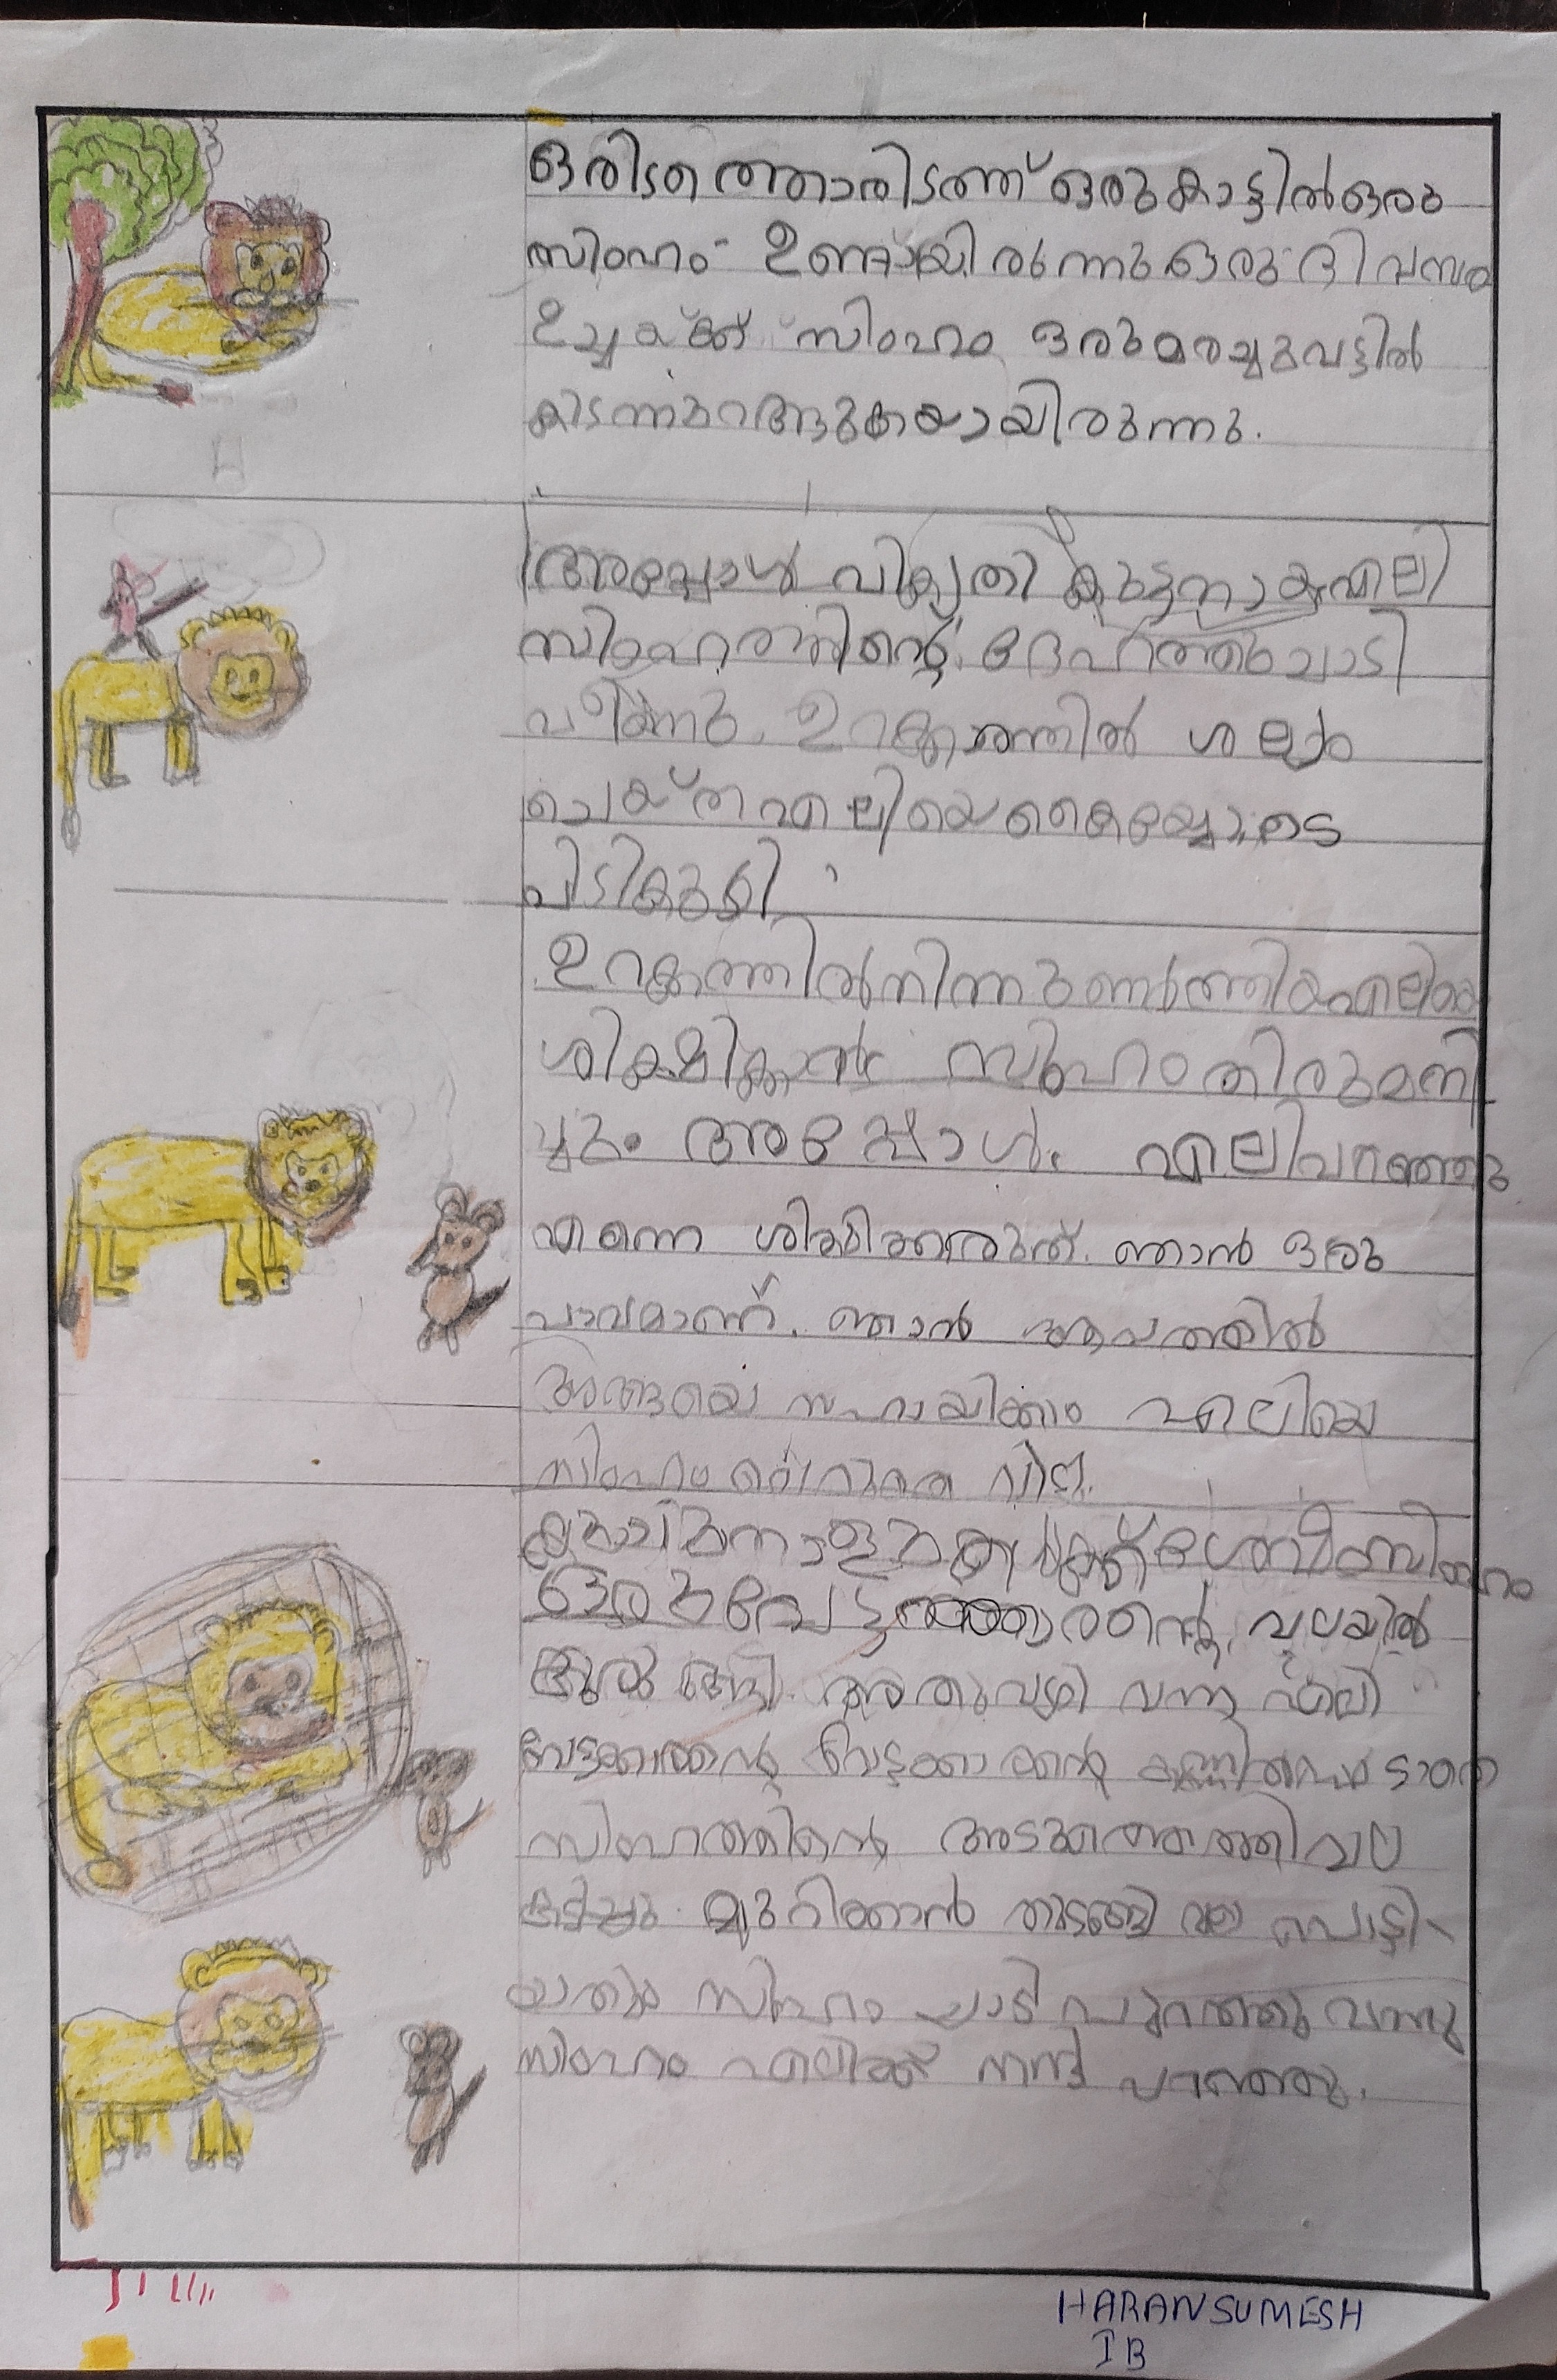 ഒരിടത്തൊരിടത്ത് ഒരു കാട്ടിൽ ഒരു
സിംഹം ഉണ്ടായിരുന്നു ഒരു ദിവസം
ഉച്ചയ്ക്ക് സിംഹം ഒരു മരച്ചുവട്ടിൽ
കിടന്നുറങ്ങുകയായിരുന്നു.
അപ്പോൾ വികൃതി കുട്ടനായ എലി
സിംഹത്തിന്റെ ദേഹത്തു ചാടി
ഉറക്കത്തിൽ ശല്യം
ചെയ്ത എലിയെ കൈയ്യോടെ
പിടികൂടി
ഉറക്കത്തിൽ നിന്നുണർത്തിയ എലിയെ
ശിക്ഷിക്കാൻ സിംഹം തിരുമാനി
ച്ചു. അപ്പോൾ. എലി പറഞ്ഞു
എന്നെ ശിക്ഷിക്കരുത്. ഞാൻ ഒരു
പാവമാണ്. ഞാൻ ആപത്തിൽ
അങ്ങയെ സഹായിക്കാം എലിയെ
സിംഹം വെറുതെ വിട്ടു.
ഒരു വേട്ടക്കാരന്റെ വലയിൽ
കുരുങ്ങി. അതുവഴി വന്ന എലി
വേട്ടക്കാരന്റെ വേട്ടക്കാരന്റെ കണ്ണിൽപെടാതെ
സിംഹത്തിന്റെ അടുത്തെത്തി വല
കടിച്ചു മുറിക്കാൻ തുടങ്ങി വല പൊട്ടി
യതും സിംഹം ചാടി പുറത്തു വന്നു
സിംഹം എലിക്ക് നന്ദി പറഞ്ഞു.
HARAN SUMESH
I B